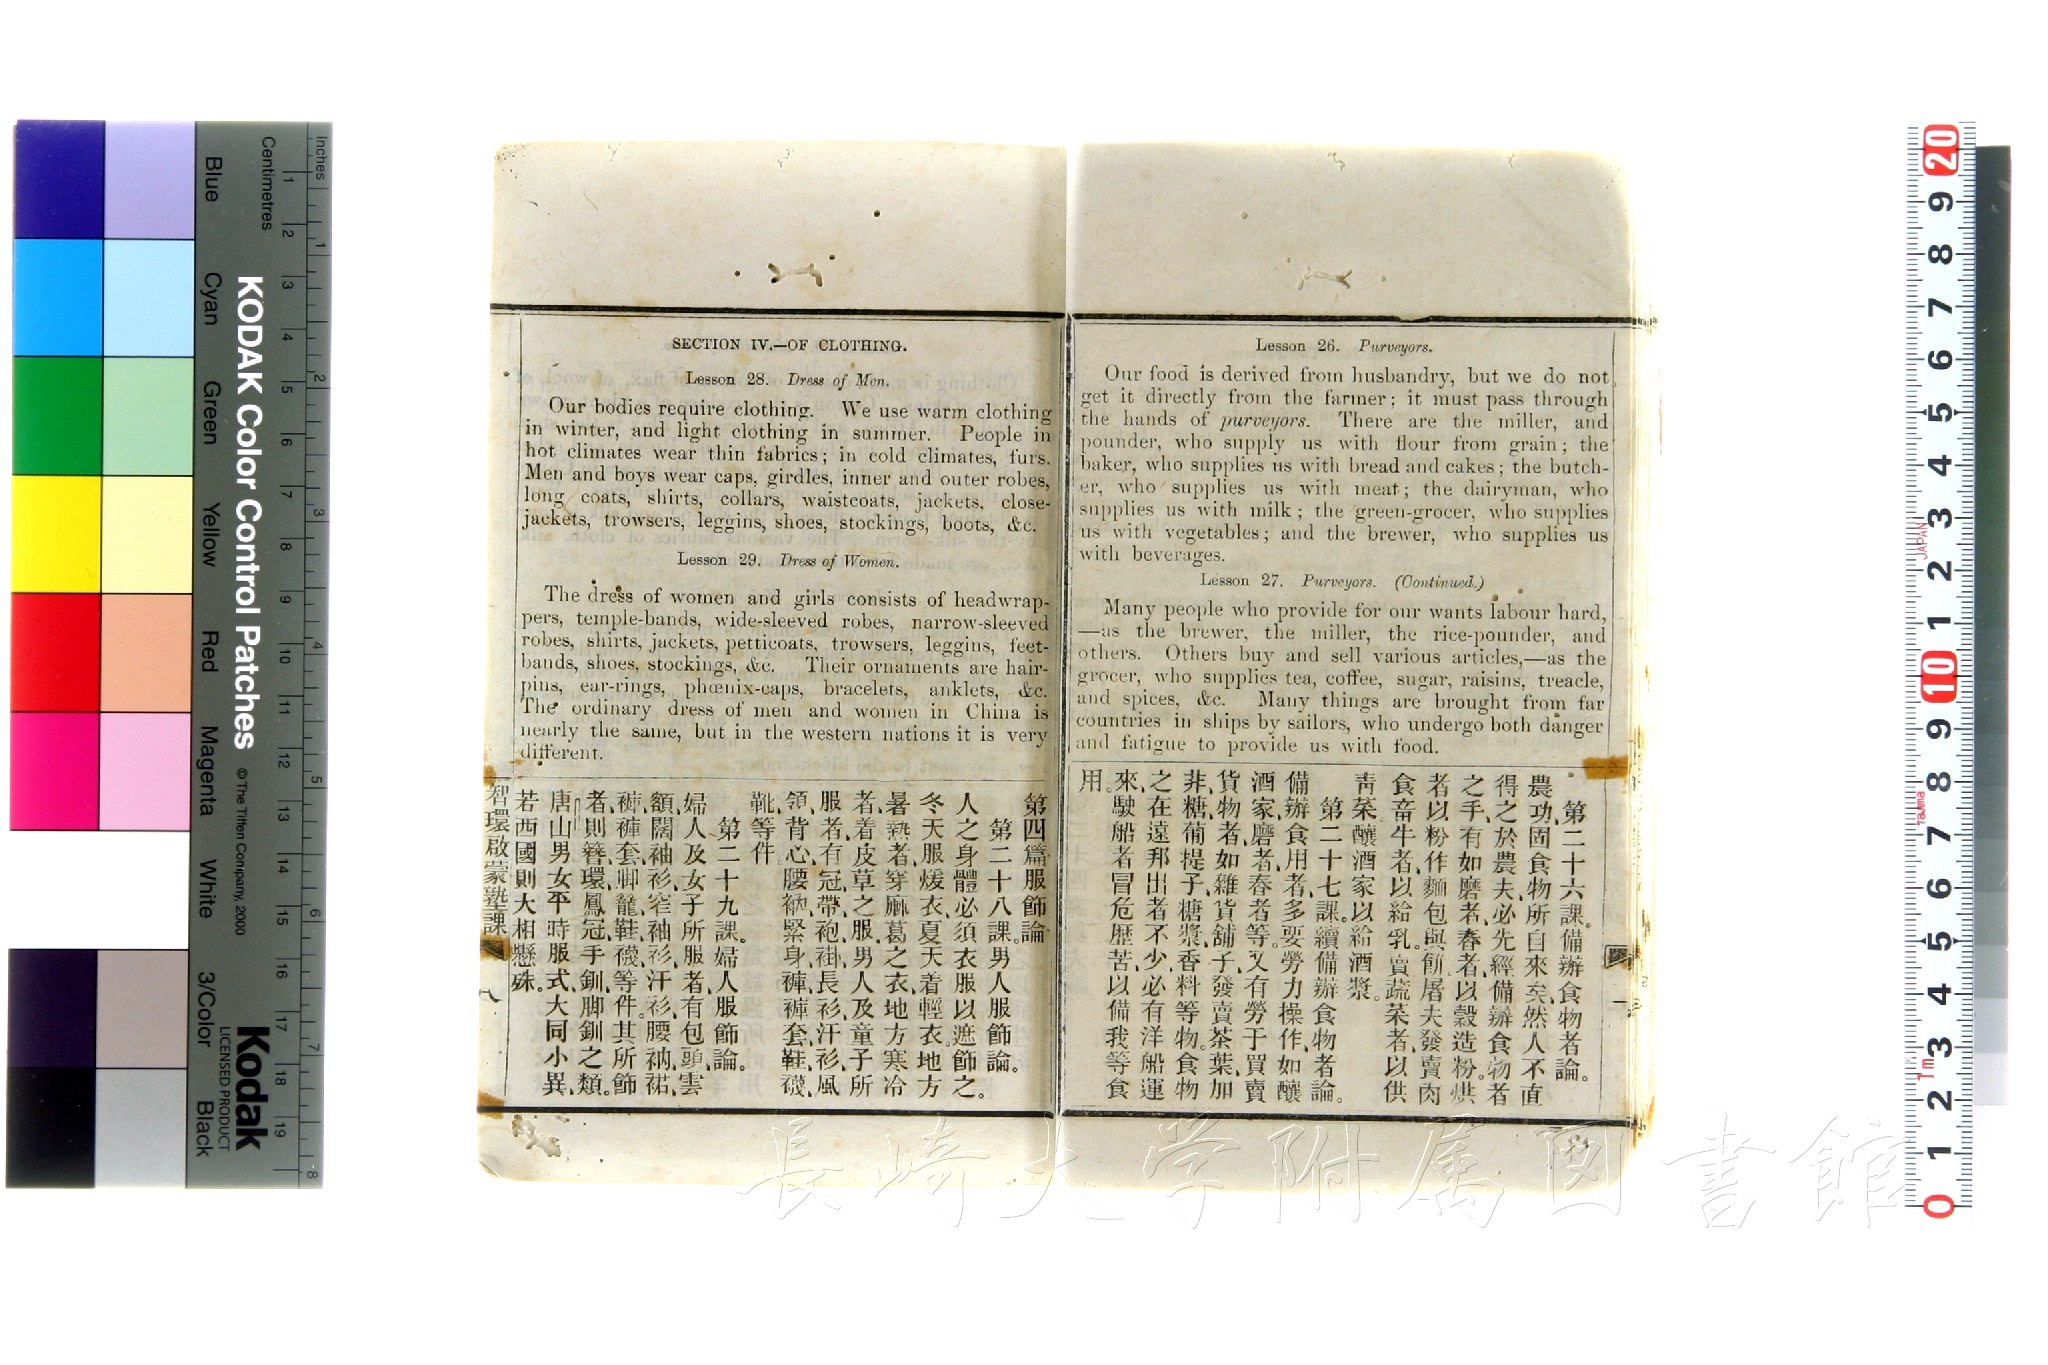 KODAK Color Control Patches
© The Tiffen Company, 2000
Kodak
LICENSED PRODUCT
Inches
Centimetres
Blue
Cyan
Green
Yellow
Red
Magenta
White
3/Color
Black
Lesson 26. Purveyors.
Our food is derived from husbandry, but we do not
get it directly from the farmer; it must pass through
the hands of purveyors. There are the miller, and
pounder, who supply us with flour from grain; the
baker, who supplies us with bread and cakes; the butch-
er, who supplies us with meat; the dairyman, who
supplies us with milk; the green-grocer, who supplies
us with vegetables; and the brewer, who supplies us
with beverages.
Lesson 27. Purveyors. (Continued.)
Many people who provide for our wants labour hard,
—as the brewer, the miller, the rice-pounder, and
others. Others buy and sell various articles,—as the
grocer, who supplies tea, coffee, sugar, raisins, treacle,
and spices, &c. Many things are brought from far
countries in ships by sailors, who undergo both danger
and fatigue to provide us with food.
第二十六課。備辦食物者論。
農功、固食物所自來矣、然人不直
得之於農夫、必先經備辦食物者
之手、有如磨者、舂者、以穀造粉。烘
者以粉作麵包與餠、屠夫發賣肉
食、畜牛者、以給乳。賣蔬菜者、以供
靑菜、釀酒家以給酒漿。
第二十七課。續備辦食物者論。
備辦食用者、多要勞力操作、如釀
酒家、磨者、舂者等。又有勞于買賣
貨物者、如雜貨舖子、發賣茶葉、加
非、糖、葡提子、糖漿、香料等物。食物
之在遠邦出者不少、必有洋船運
來、駛船者冒危歷苦、以備我等食
用。
SECTION IV.—OF CLOTHING.
Lesson 28. Dress of Men.
Our bodies require clothing. We use warm clothing
in winter, and light clothing in summer. People in
hot climates wear thin fabrics; in cold climates, furs.
Men and boys wear caps, girdles, inner and outer robes,
long coats, shirts, collars, waistcoats, jackets, close-
jackets, trowsers, leggins, shoes, stockings, boots, &c.
Lesson 29. Dress of Women.
The dress of women and girls consists of headwrap-
pers, temple-bands, wide-sleeved robes, narrow-sleeved
robes, shirts, jackets, petticoats, trowsers, leggins, feet-
bands, shoes, stockings, &c. Their ornaments are hair-
pins, ear-rings, phœnix-caps, bracelets, anklets, &c.
The ordinary dress of men and women in China is
nearly the same, but in the western nations it is very
different.
第四篇服飾論
第二十八課。男人服飾論。
人之身體、必須衣服以遮飾之。
冬天服煖衣、夏天着輕衣。地方
暑熱者、穿麻葛之衣、地方寒冷
者、着皮草之服。男人及童子所
服者、有冠、帶、袍、褂、長衫、汗衫、風
領、背心、腰衲、緊身、褲、褲套、鞋、襪、
靴、等件。
第二十九課。婦人服飾論。
婦人及女子所服者、有包頭、雲
額、闊袖衫、窄袖衫、汗衫、腰衲、裙、
褲、褲套、脚籠、鞋、襪、等件。其所飾
者、則簪、環、鳳冠、手釧、脚釧之類。
唐山男女平時服式、大同小異、
若西國則大相懸殊。
智環啟蒙塾課
八
長崎大学附属図書館
JAPAN
TAJIMA
1m